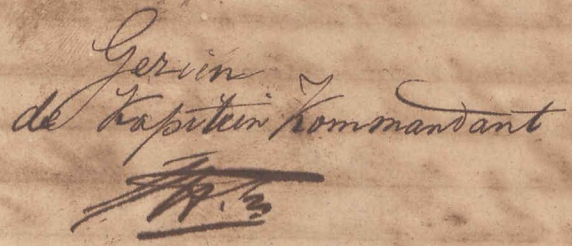 Gezien
de Kapitein Kommandant